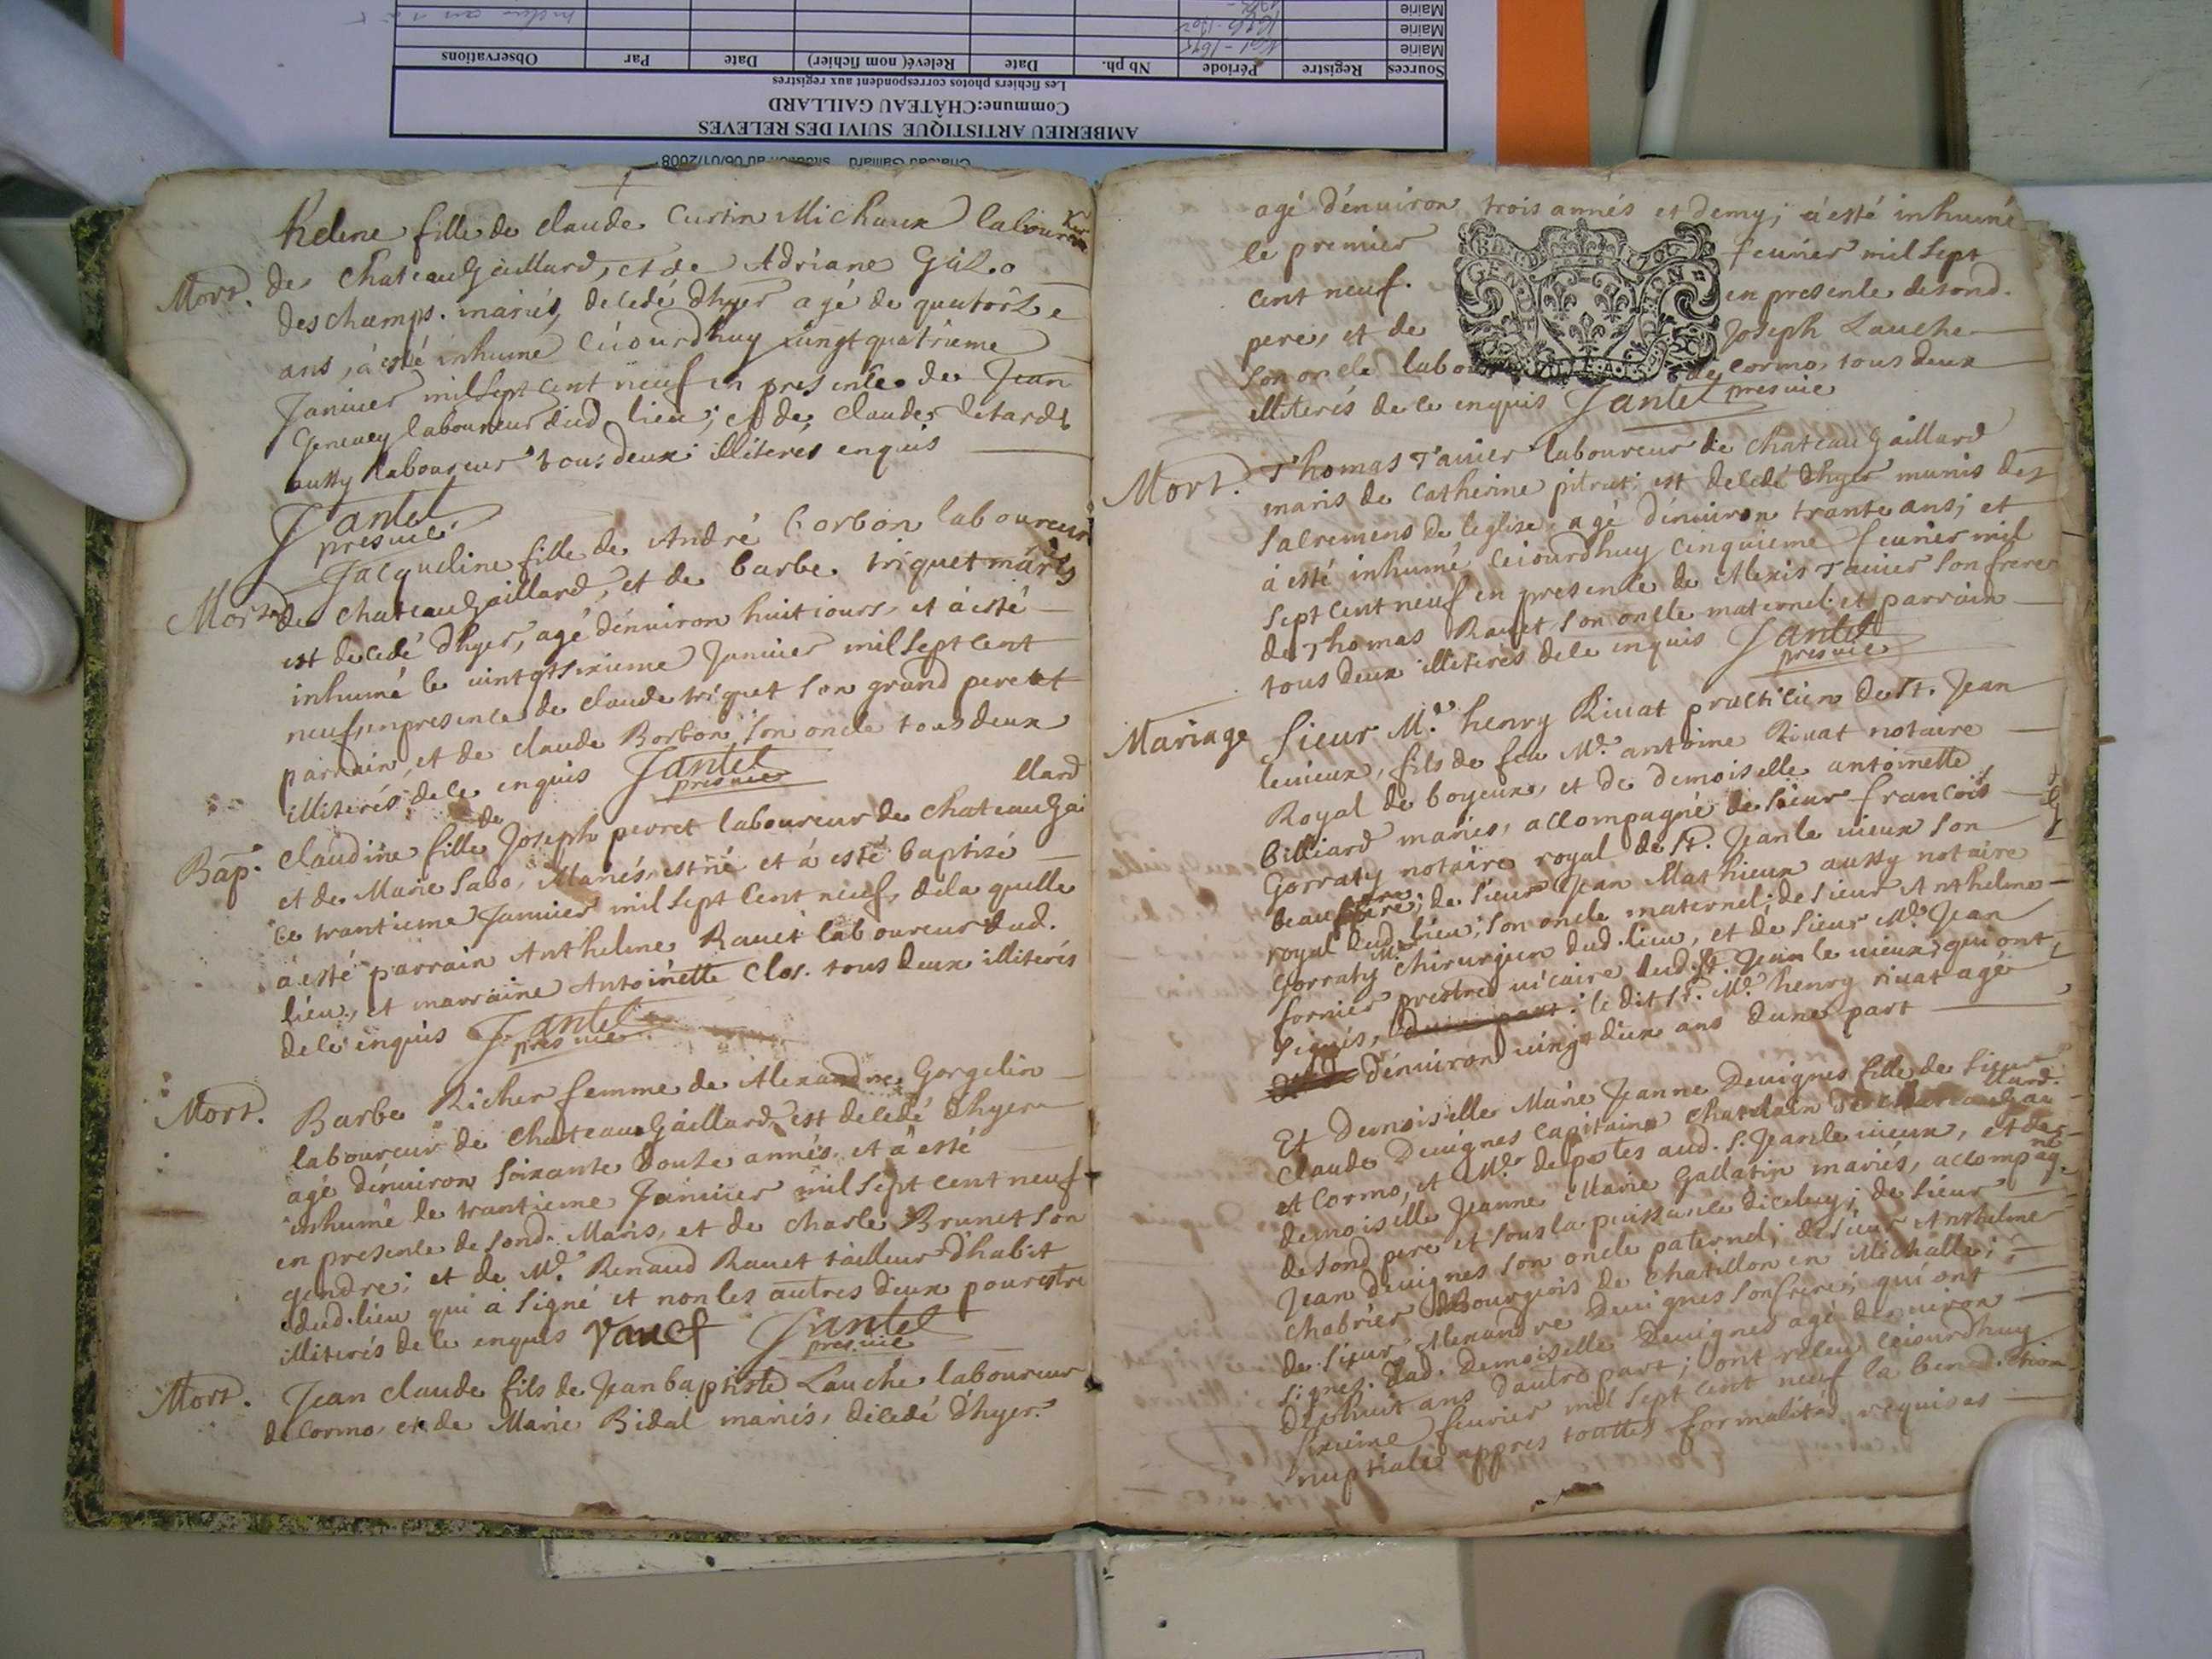 Chateau Gaillard situation au 06/01/2008
AMBERIEU ARTISTIQUE SUIVI DES RELEVES
Commune: CHÂTEAU GAILLARD
Les fichiers photos correspondent aux registres
Sources Registre Période Nb ph. Date Relevé( nom fichier) Date Par Observations
Mairie
Mairie
Mairie
helene fille de claude Curtin Michaux laboureur
Mort. de chateauGaillard, et de Adriane Gill
deschamps. mariés, decedé dhyer agé de quatorze
ans, à esté inhumé ciiourdhuy uingt quatrieme
Januier mil sept cent neuf en presence de Jean
Geneuey laboureur dud lieu; et de claude
aussy laboureur tous deux illiterés enquis
Jantet
presuic
Jacqueline fille de André Borbon laboureur
Morte de chateauGaillard, et de barbe triquet mariés
est decedé dhyer, agé dénuiron huit iours, et à esté
inhumé le uintgtsixieme Januier mil sept cent
neuf, enpresence de claude triquet son grand pere et
parrain, et de claude Borbon son oncle tous deux
illiterés dece enquis Jantet
presuic
llard
Bap. Claudine fille de Joseph perret laboureur de chateauGai
et de Marie Sabo, Mariés, est né et à esté baptisé
ce trantieme Januier mil sept cent neuf, dela quelle
à esté parrain Anthelme Rauet laboureur dud.
lieu, et marraine Antoinette Clos. tous deux illiterés
dece enquis Jantet
presuic
Mort. Barbe Richer femme de Alexandre Gorgelin
laboureur de chateauGaillard, est decedé dhyer
agé dénuiron soixante douze annés, et à esté
inhumé le trantieme Januier mil sept cent neuf
en presence de sond. Maris, et de charle Brunet son
gendre; et de Me. Renaud Rauet tailleur dhabit
dud. lieu qui à signé et non les autres deux pour estre
illiterés de ce enquis Jantet
presuic
Mort. Jean claude fils de Jean baptiste Lauche laboureur
de Cormo, et de Marie Bidal mariés, decedé dhyer.
agé dénuiron trois annés et demy; à esté inhumé
le premier feurier mil sept
cent neuf. en presence de sond.
pere, et de Joseph Lauche
son oncle de cormo, tous deux
illiterés de ce enquis Jantet presuic
Mort. Thomas Tauier laboureur de chateauGaillard
maris de Catherine pitrat est decedé dhyer munis des
sacremens de leglise, agé dénuiron trante ans; et
à esté inhumé ceiourdhuy cinquieme feurier mil
sept cent neuf en presence de Alexis Tauier son frere
de Thomas Rauet son oncle maternel et parrain
tous deux illiterés de ce enquis Jantet
presuic
Mariage Sieur Me. henry Riuat practicien de St. Jean
leuieux, fils de feu Me. antoine Riuat notaire
Royal de boyeux, et de demoiselle antoinette
billiard mariés, accompagné de sieur françois
Gorraty notaire royal de St. Jean le uieux son
beaufrere; de sieur Jean Mathieux aussy notaire
royal dud. lieu, son oncle maternel; de sieur Anthelme
Gorraty Me. chirurgien dud. lieu, et de sieur Me. Jean
fornier prestre uicaire dud. St. Jean le uieux, qui ont
signés, le dit Sr. Me. henry riuat agé
dénuiron uingt deux ans dune part
Et Demoiselle Marie Jeanne Deuignes fille de sieur
Claude Deuignes capitaine chatelain de chateauGaillard
et Cormo, et Me. de postes aud. S. Jean le uieux, et de
demoiselle Jeanne Marie Gallatin mariés, accompagné
de sond pere et sous la puissance diceluy; de sieur
Jean Deuignes son oncle paternel; de sieur Anthelme
chabrier Bourgeois de chatillon en Michaille;
de sieur Alexandre Deuignes son frere; qui ont
signes. Lad. Demoiselle Deuignes agé denuiron
dixhuit ans dautre part; ont receu ceiourdhuy
sixieme feurier mil sept cent neuf la benediction
nuptiale appres touttes formalités requises